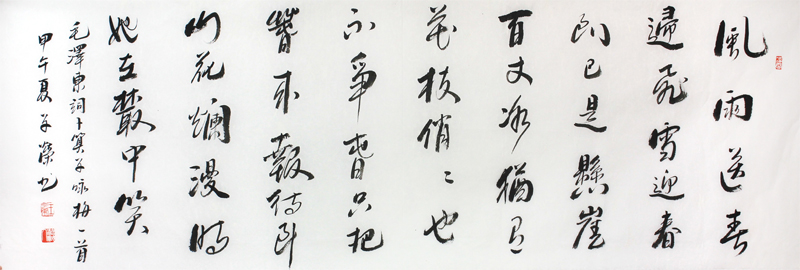 風雨送春
歸飛雪迎春
到已是懸崖
百丈冰猶有
花枝俏〻也
不爭春只把
春來報待到
山花爛漫時
她在叢中笑
毛澤東詞卜算子咏梅一首
甲午夏子榮书